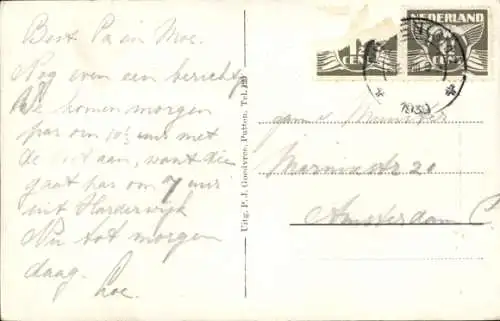 Best Pa en Moe.
Nog even een berichtje
We komen morgen
pas om 10½ uur met
de boot aan, want die
gaat pas om 7 uur
uit Harderwijk
Nu tot morgen
daag.
Uitg. P. J. Goedvree, Putten. Tel.
NEDERLAND
CENT
CENT
1939
Marnixstr 20
Amsterdam C.